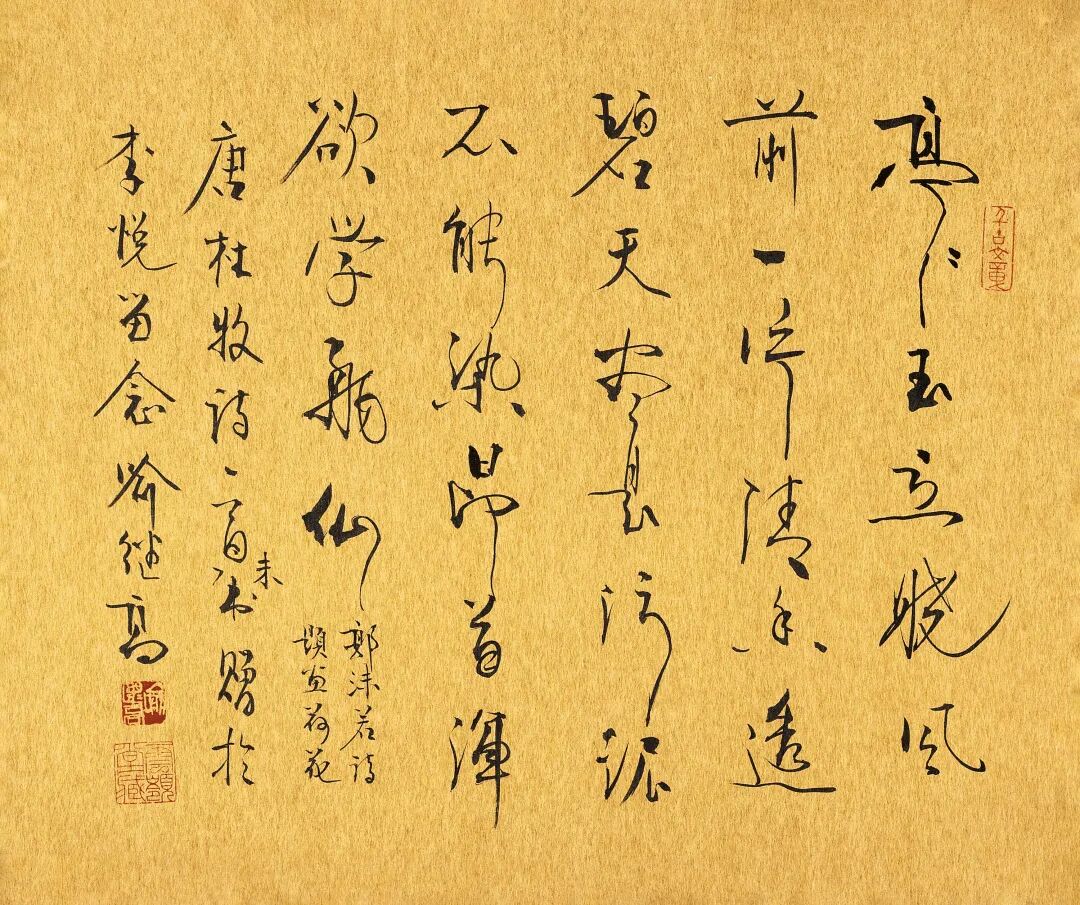 亭々玉立晓风
前一片清香透
碧天尽是污泥
不能染昂首浑
欲学飛仙
郭沫若诗
题画荷花
唐杜牧诗一首未书赠於
李悦留念喻继高